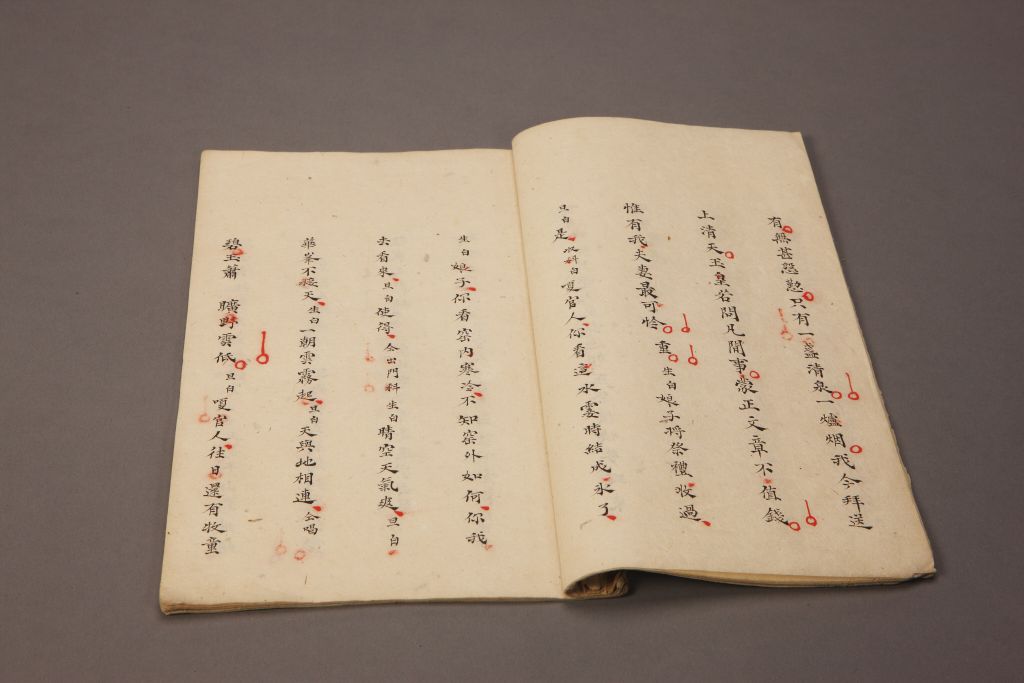 有無甚慇懃只有一盞清泉一爐烟我今拜送
上清天玉皇若問凡間事蒙正文章不值錢
惟有我夫妻最可怜 重 生白娘子將祭禮收過
旦白是收科白嗄官人你看這水霎時結成氷了
生白娘子你看窑内寒冷不知窑外如何你我
去看來旦白使得仝出門科生白晴空天氣爽旦白
華峯不接天生白一朝雲霧起旦白天與地相連仝唱
碧玉蕭 曠野雲低旦白嗄官人往日還有牧童